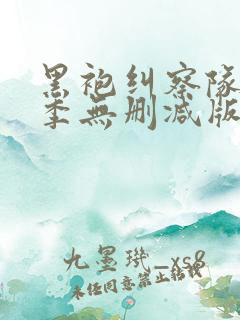 黑袍纠察隊
季無删减版
九墨璣_xs8
未经同意禁止转载